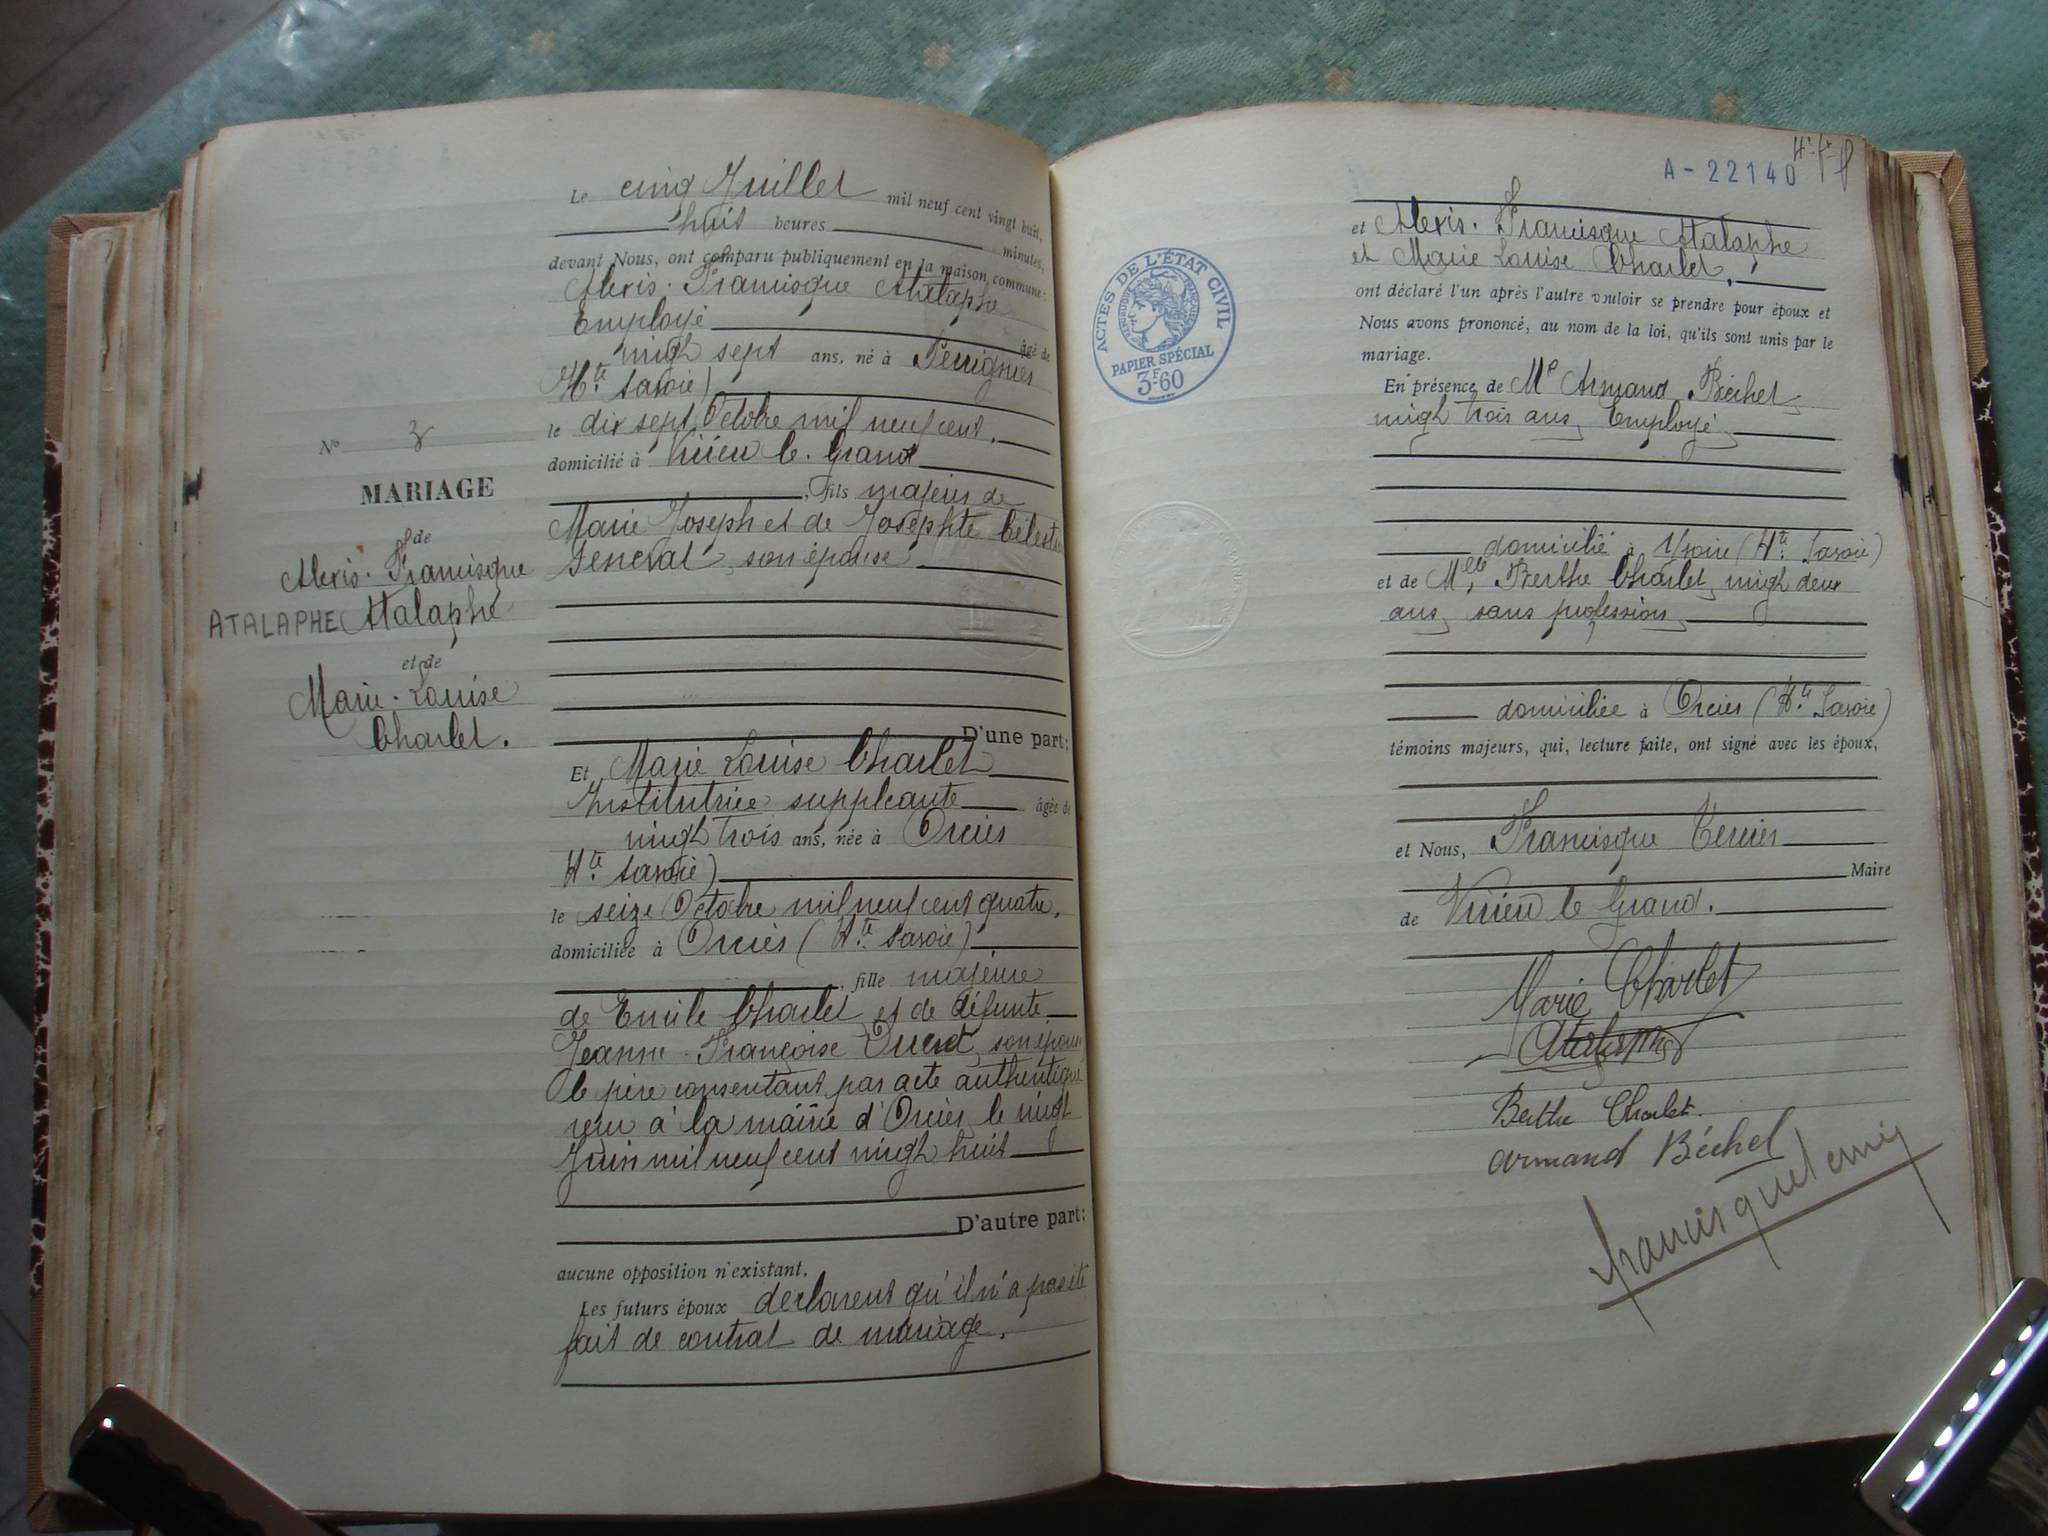 Le cinq Juillet mil neuf cent vingt huit,
huit heures minutes,
devant Nous, ont comparu publiquement en la maison commune :
Alexis. Francisque Atalaphe
Employé âgé de
vingt sept ans, né à
Hte Savoie)
le dix sept Octobre mil neuf cent,
domicilié à Virieu le Grand
, fils majeur de
Marie Joseph et de Josephte Célestine
Jeneval, son épouse
D'une part ;
Et Marie Louise Charlet
Institutrice suppléante âgée de
vingt trois ans, née à Orcier
Hte Savoie)
le seize Octobre mil neuf cent quatre,
domiciliée à Orcier (Hte Savoie)
, fille majeure
de Emile Charlet et de défunte
Jeanne-Françoise son épouse
le père consentant par acte authentique
reçu à la mairie d'Orcier le vingt
Juin mil neuf cent vingt huit
D'autre part :
aucune opposition n'existant.
Les futurs époux déclarent qu'il n'a pas été
fait de contrat de mariage.
No 3
MARIAGE
de
Alexis. Francisque
ATALAPHE Atalaphe
et de
Marie-Louise
Charlet.
A-22140
et Alexis. Francisque Atalaphe
et Marie Louise Charlet,
ont déclaré l'un après l'autre vouloir se prendre pour époux et
Nous avons prononcé, au nom de la loi, qu'ils sont unis par le
mariage.
En présence de Mr Armand Béchet
vingt trois ans, Employé
domicilié à Yvoire (Hte Savoie)
et de Melle Berthe Charlet, vingt deux
ans, sans profession,
domiciliée à Orcier (Hte Savoie)
témoins majeurs, qui, lecture faite, ont signé avec les époux,
et Nous, Francisque
Maire
de Virieu le Grand.
Marie Charlet
Atalaphe
Berthe Charlet.
Armand Béchet
ACTES DE L'ÉTAT CIVIL
RÉPUBLIQUE FRANÇAISE
PAPIER SPÉCIAL
3F60